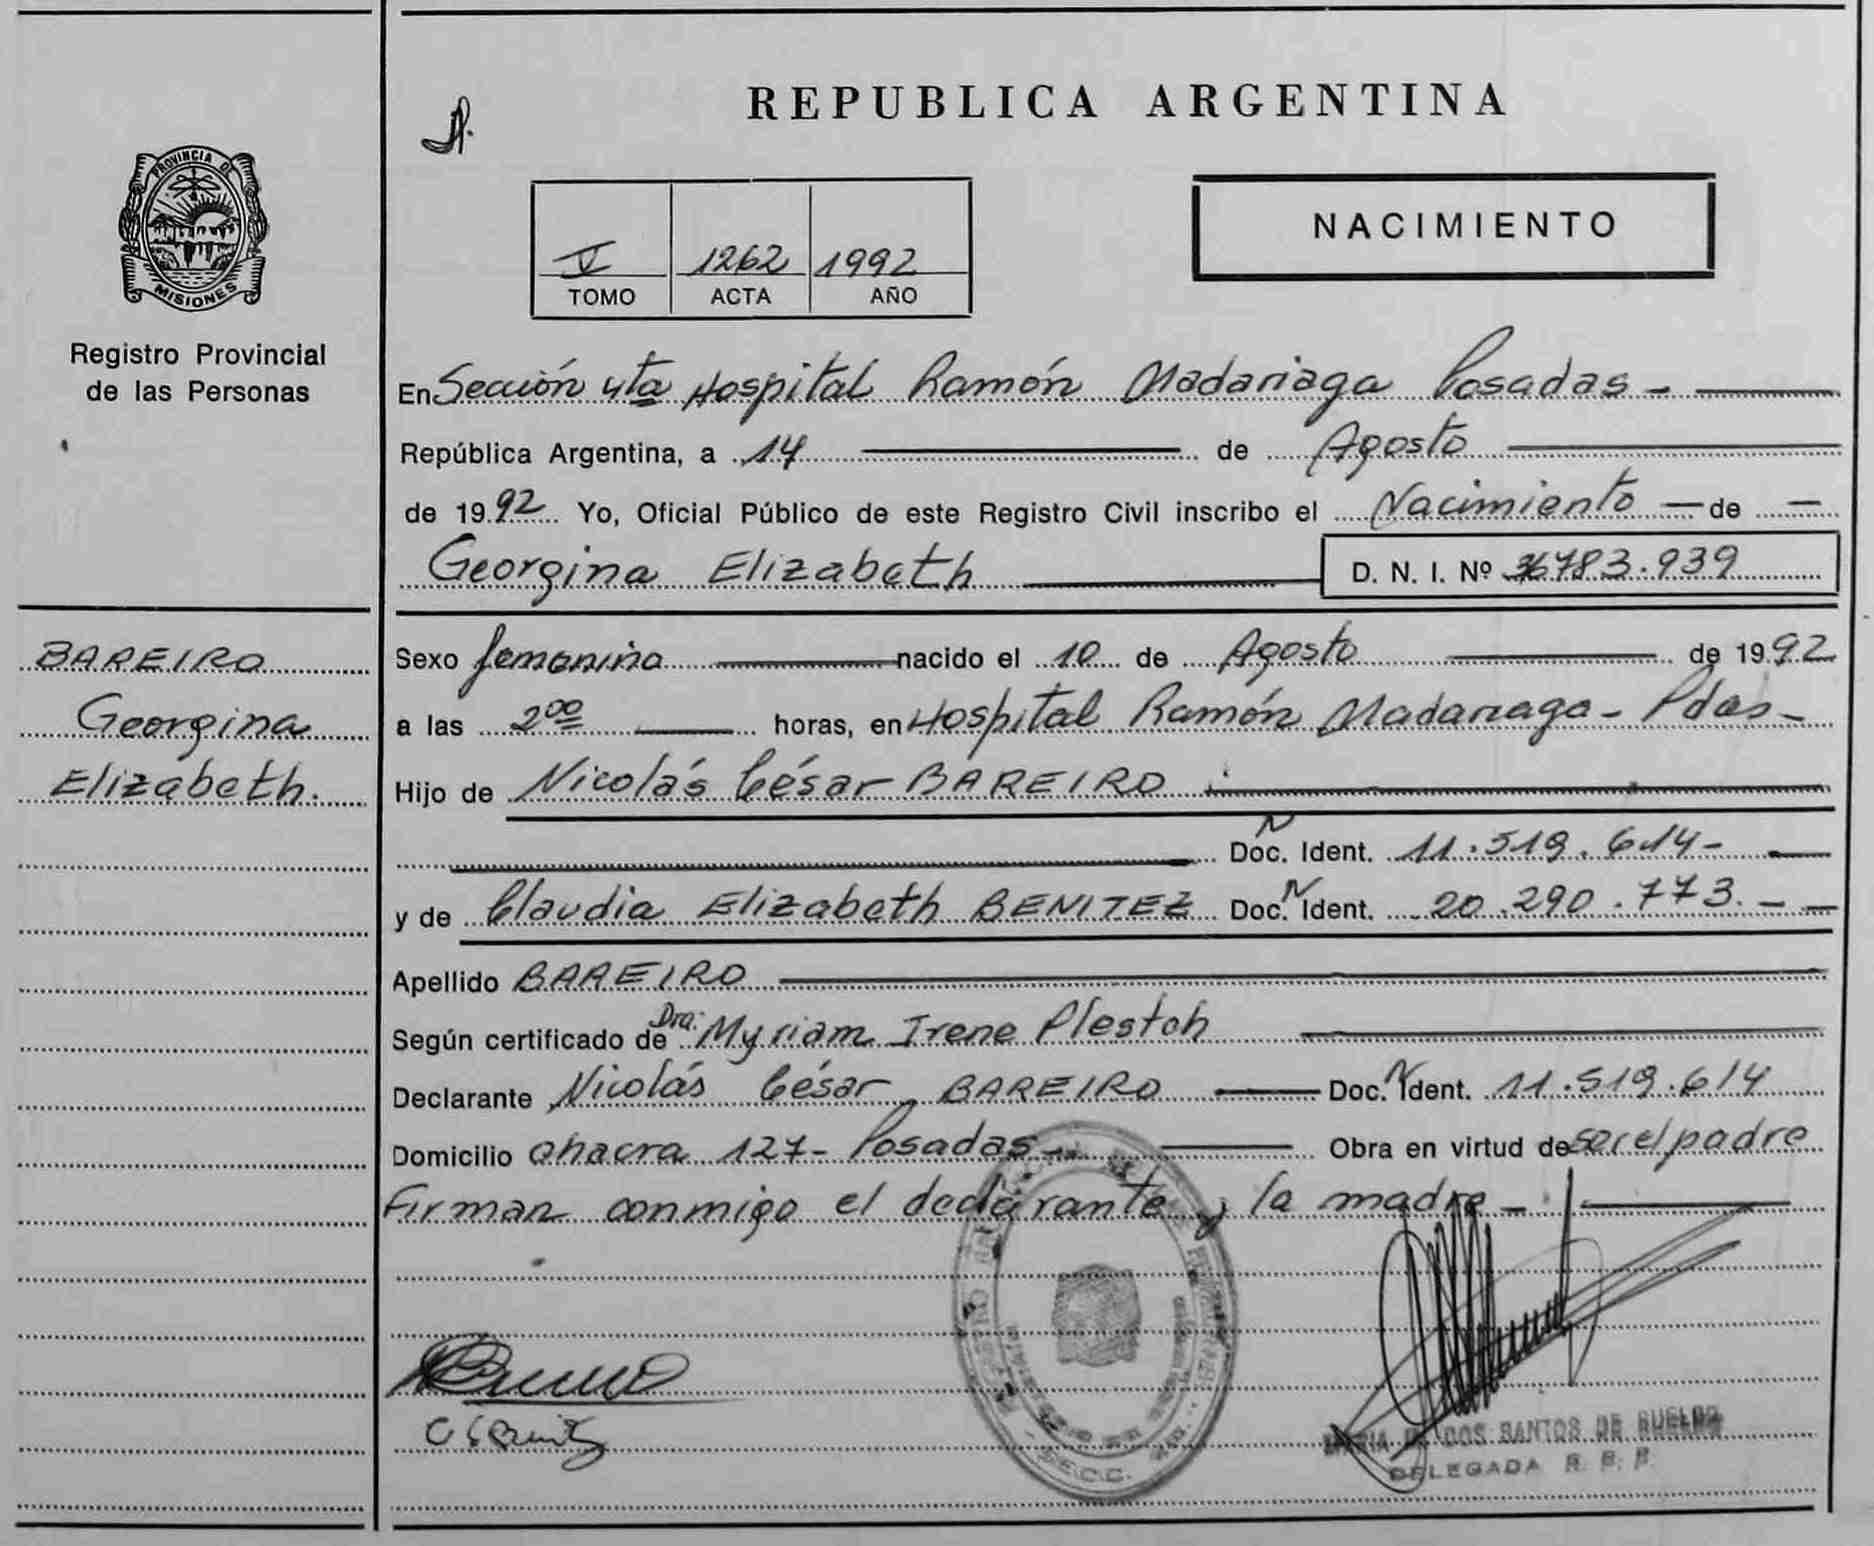 PROVINCIA DE
MISIONES
Registro Provincial
de las Personas
BAREIRO
Georgina
Elizabeth.
REPUBLICA ARGENTINA
V 1262 1992
TOMO ACTA AÑO
NACIMIENTO
En Sección 4ta Hospital Ramón Madariaga Posadas -
República Argentina, a 14 de Agosto
de 1992 Yo, Oficial Público de este Registro Civil inscribo el Nacimiento - de -
Georgina Elizabeth D. N. I. Nº 36783.939
Sexo femenino nacido el 10 de Agosto de 1992
a las 2 00 horas, en Hospital Ramón Madariaga - Pdas -
Hijo de Nicolás César BAREIRO
Doc. N Ident. 11.519.614 -
y de Claudia Elizabeth BENITEZ Doc. N Ident. 20.290.773. - -
Apellido BAREIRO
Según certificado de Dra: Myriam Irene Plestch
Declarante Nicolás César BAREIRO Doc. N Ident. 11.519.614
Domicilio chacra 127 - Posadas - Obra en virtud de ser el padre
Firman conmigo el declarante y la madre -
DOS SANTOS DE
DELEGADA
SECC.